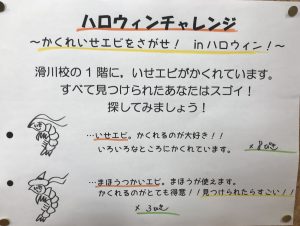 ハロウィンチャレンジ
～かくれいせエビをさがせ！ inハロウィン！～
滑川校の1階に，いせエビがかくれています。
すべて見つけられたあなたはスゴイ！
探してみましょう！
…いせエビ。かくれるのが大好き！！
いろいろなところにかくれています。
…まほうつかいエビ。まほうが使えます。
かくれるのがとても得意！！見つけられたらすごい！！